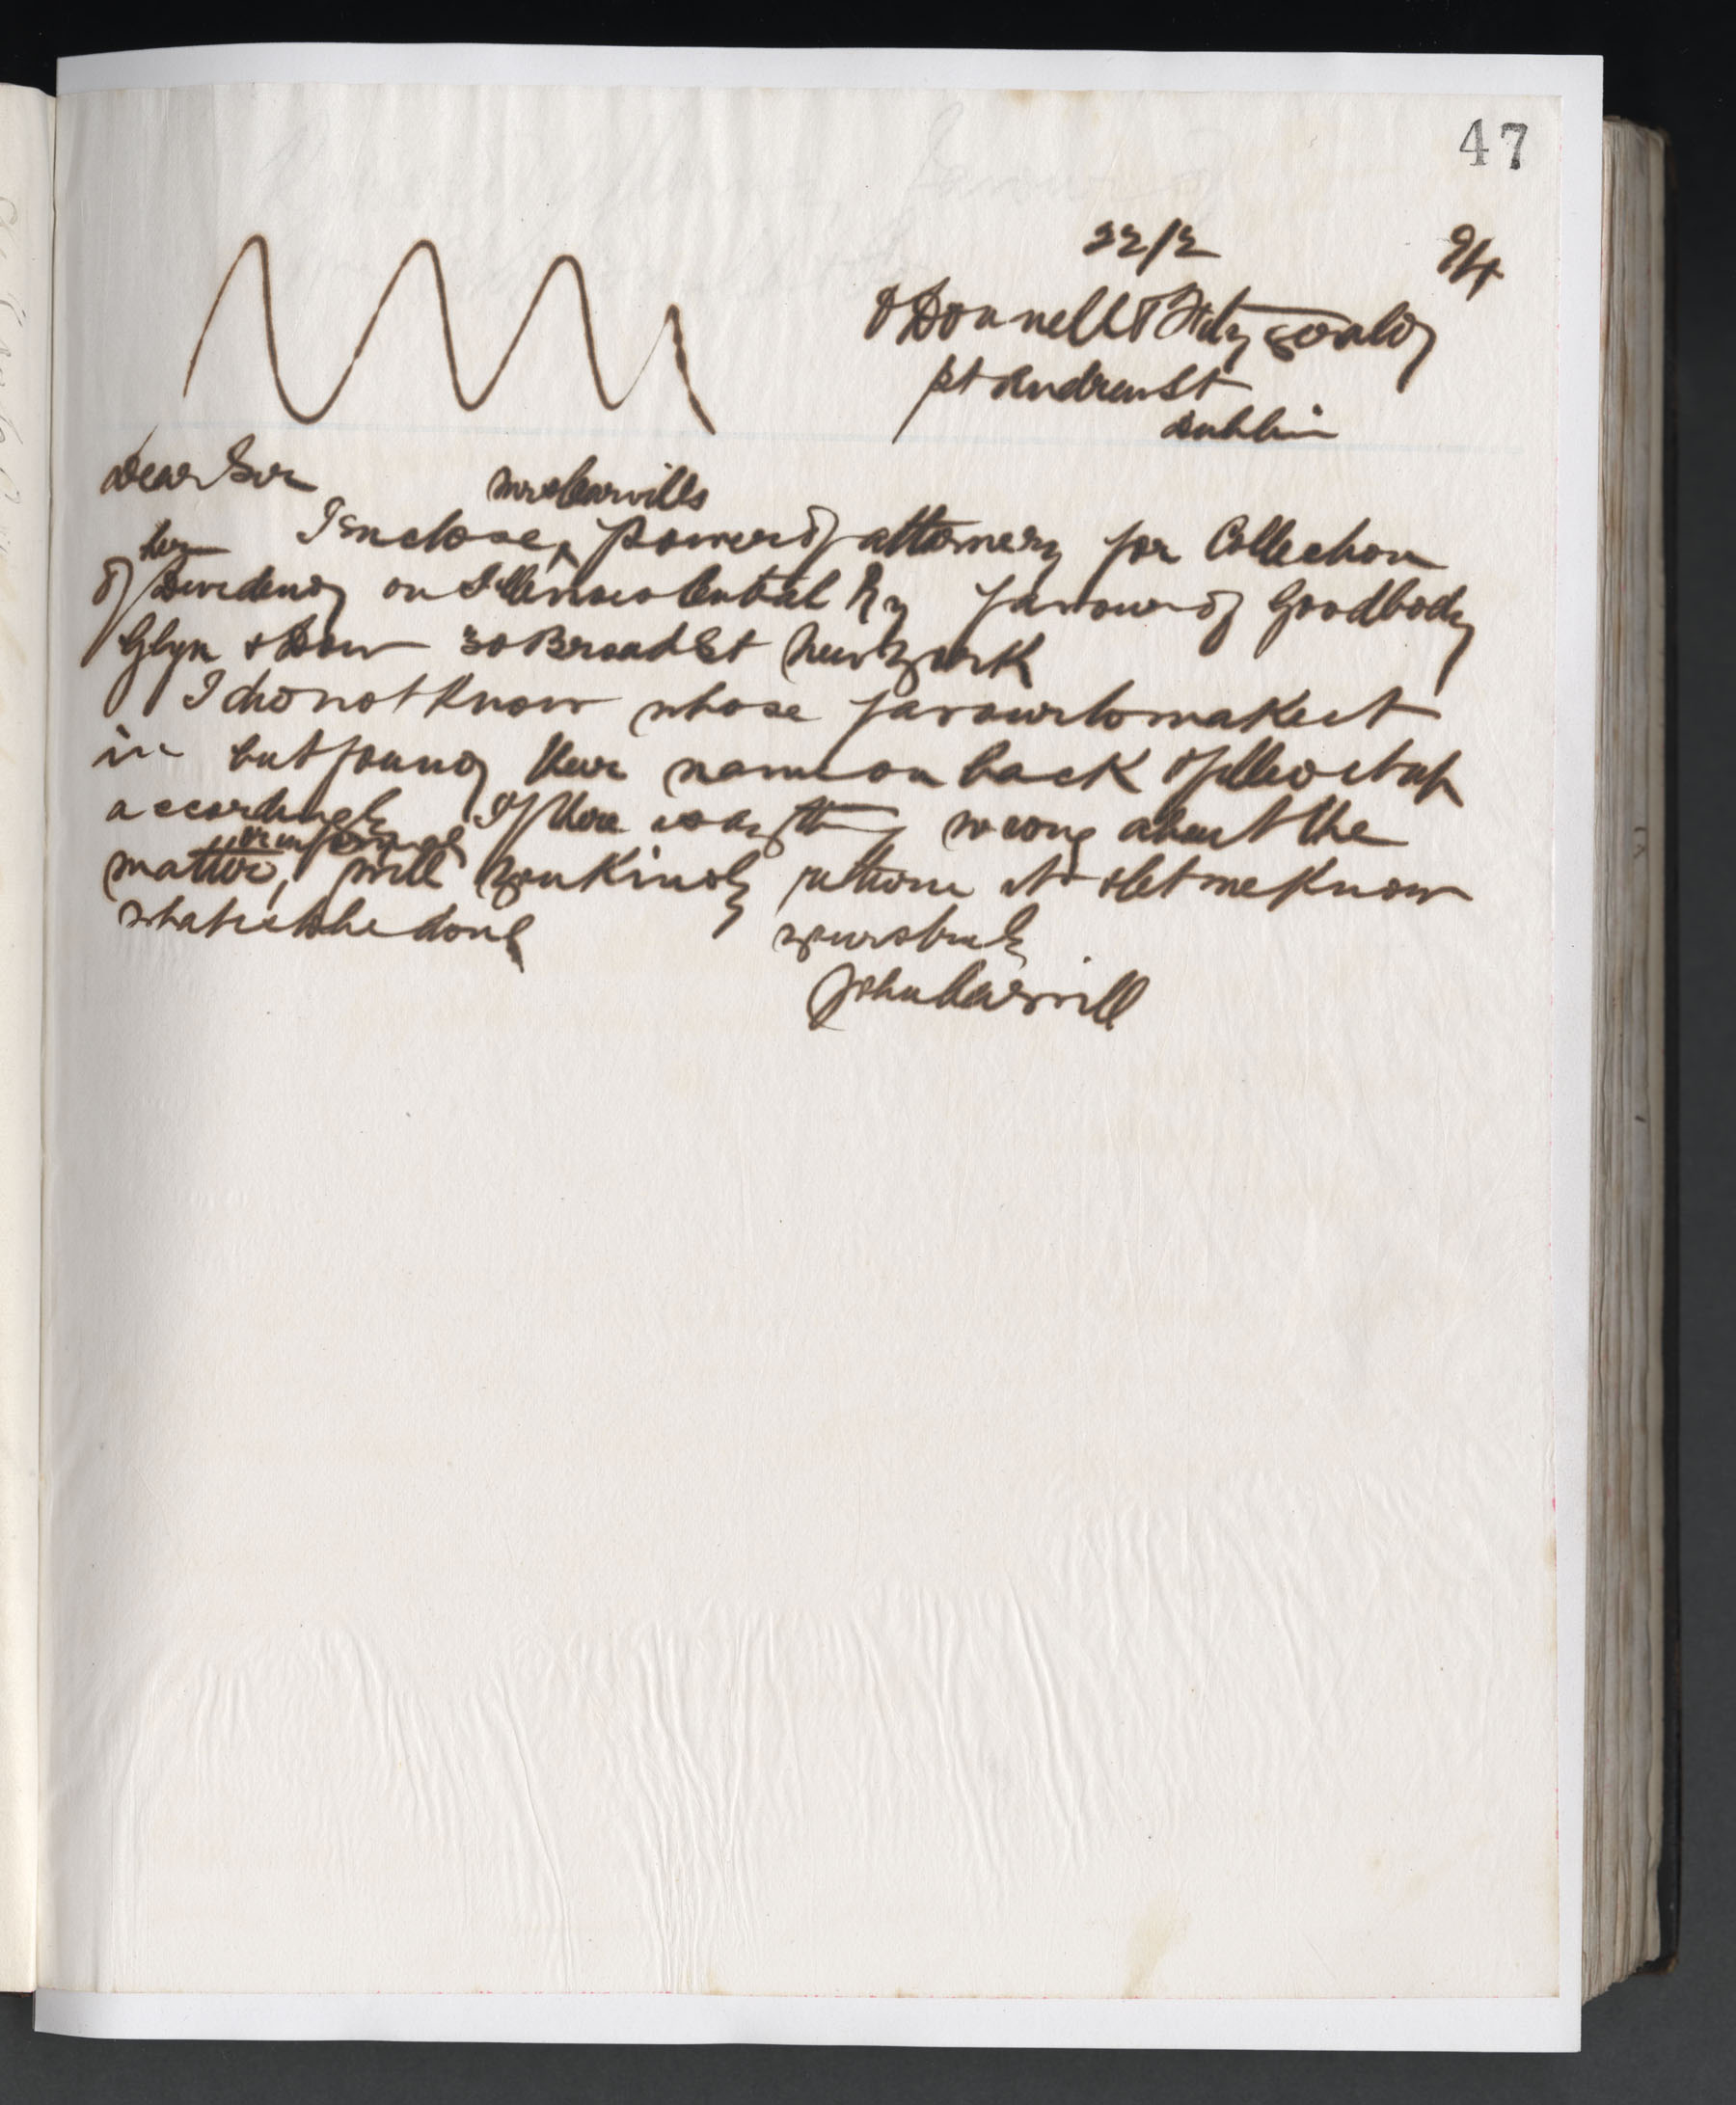 47
22/2 94
O Donnell & Fitzgerald
St Andrew St
Dublin
Dear Sir
Mrs Carvills
I enclose ^ Power of attorney for Collection
her
of Dividend on Illinois Central Ry favour of Goodbody
Glyn & Dow 30 Broad St New York
I do not know whose favour to make it
in but found their name on back of
accordingly If there is anything wrong about the
or informal
matter, will you kindly return it & let me know
what is to be done
yours truly
John Carvill